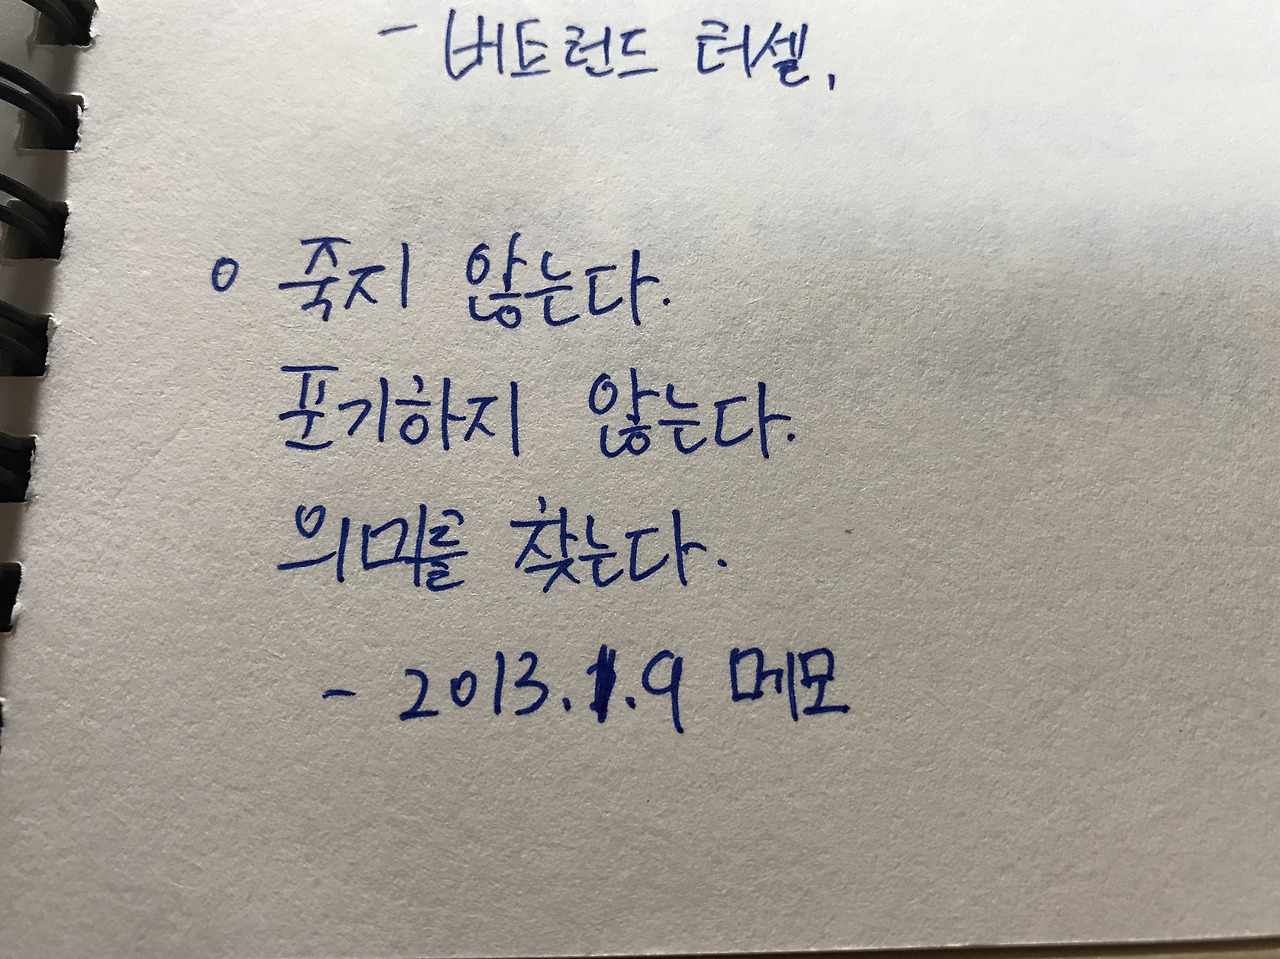 - 버트런드 러셀,
o 죽지 않는다.
포기하지 않는다.
의미를 찾는다.
- 2013.1.9 메모